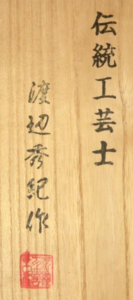 伝統工芸士
渡辺秀紀作